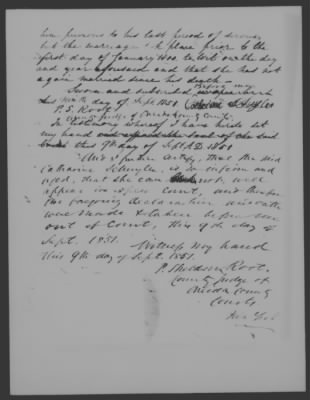 him previous to his last period of service
but the marriage took place prior to the
first day of January 1800, to wit on the day
and year aforesaid and that she has not
again married since his death.
Sworn and subscribed before me
this ninth day of Sept 1851.
P. S. Root
County Judge of Oneida County
testimony whereof I have hereto set
my hand and affixed the seal of the said
this 9th day of Sept A.D. 1851
And I further certify, that the said
Catharine Schuyler, is so infirm and
aged, that she can not, well
appear in open Court, and therefore
the foregoing declaration and oath
was made & taken before me
out of Court, this 9th day of
Sept. 1851. Witness my hand
this 9th day of Sept. 1851.
P. Root
County Judge of
Oneida County
Courts
New York